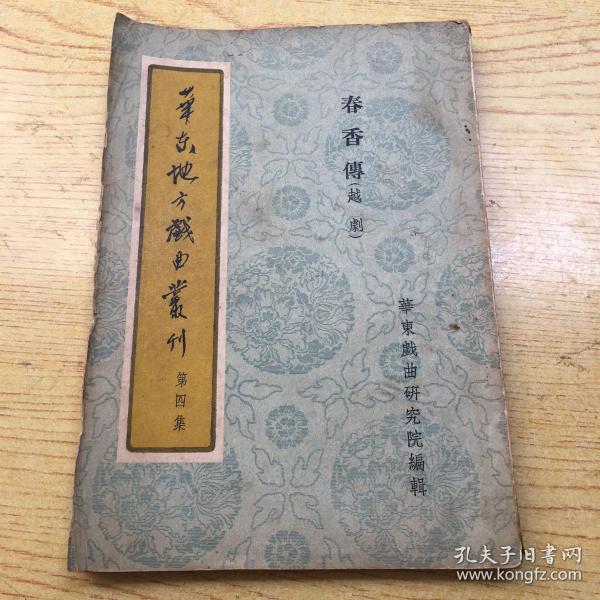 華东地方戲曲叢刊
第四集
春香傳（越劇）
華東戲曲研究院編輯
孔夫子旧书网
www.kongfz.com